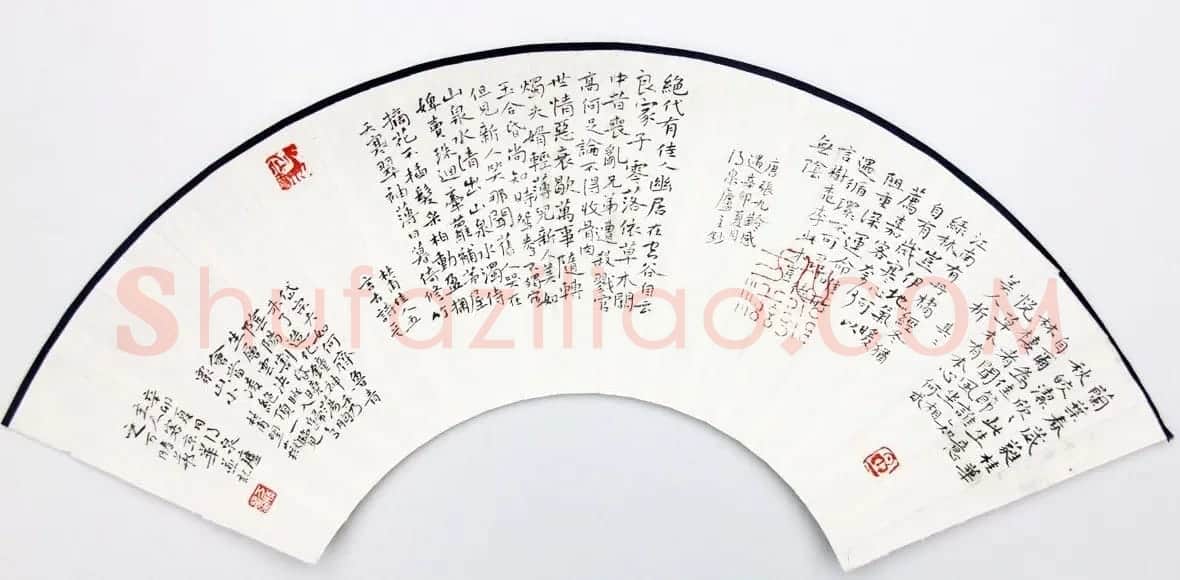 蘭葉春葳蕤桂華
秋皎潔欣欣此生意
自爾為佳節誰知
林棲者聞風坐相
悅草木有本心何求
美人折
江南有丹橘經冬猶
綠林豈伊地氣暖
自有歲寒心可以
薦嘉客奈何
阻重深運命惟所
遇循環不可尋徒
言樹桃李此木豈
無陰
唐張九齡感
遇辛卯夏月
泉廬主抄
絕代有佳人幽居在空谷自云
良家子零落依草木關
中昔喪亂兄弟遭殺戮官
高何足論不得收骨肉
世情惡衰歇萬事隨轉
燭夫婿輕薄兒新人美如
玉合昏尚知時鴛鴦不獨宿
但見新人笑那聞舊人哭在
山泉水清出山泉水濁侍
婢賣珠迴牽蘿補茅屋
摘花不插髮采柏動盈掬
天寒翠袖薄日暮倚修竹
杜甫佳人五
言古詩
岱宗夫如何齊魯青
未了造化鍾神秀
陰陽割昏曉蕩胸
生層雲決眥入歸鳥
會當凌絕頂一覽
眾山小
Shufaziliao.COM